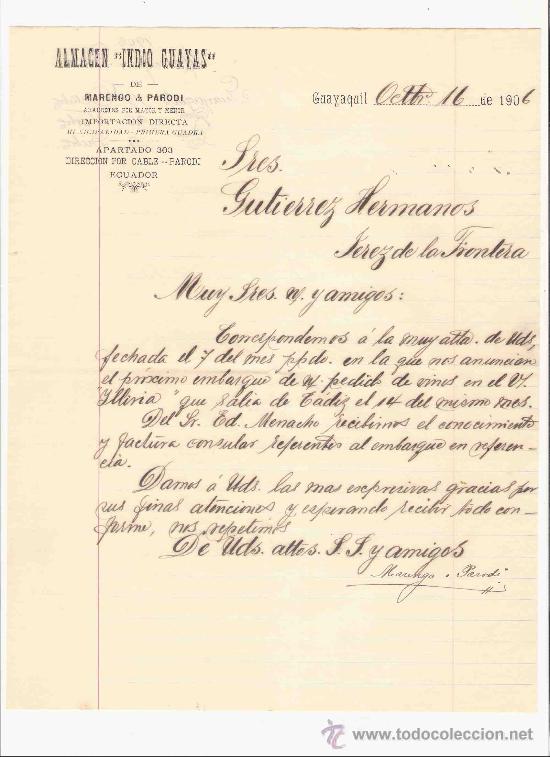 ALMACEN "INDIO GUAYAS"
DE
MARENGO & PARODI
ABARROTES POR MAYOR Y MENOR
IMPORTACIÓN DIRECTA
MUNICIPALIDAD - PRIMERA CUADRA
APARTADO 303
DIRECCION POR CABLE--PARODI
ECUADOR
Guayaquil Octbr. 16 de 1906
Sres.
Gutierrez Hermanos
Jerez de la Frontera
Muy Sres. n. y amigos:
Correspondemos á la muy atta. de Uds,
fechada el 7 del mes ppdo. en la que nos anuncian
el próximo embarque de n/ pedido de vinos en el V/
"Illiria" que salia de Cádiz el 14 del mismo mes.
Del Sr. Ed. Menacho recibimos el conocimiento
y factura consular referentes al embarque en referen-
cia.
Damos á Uds. las mas expresivas gracias por
sus finas atenciones y esperando recibir todo con-
forme, nos repetimos
De Uds. attos. S. S. y amigos
Marengo & Parodi
www.todocoleccion.net